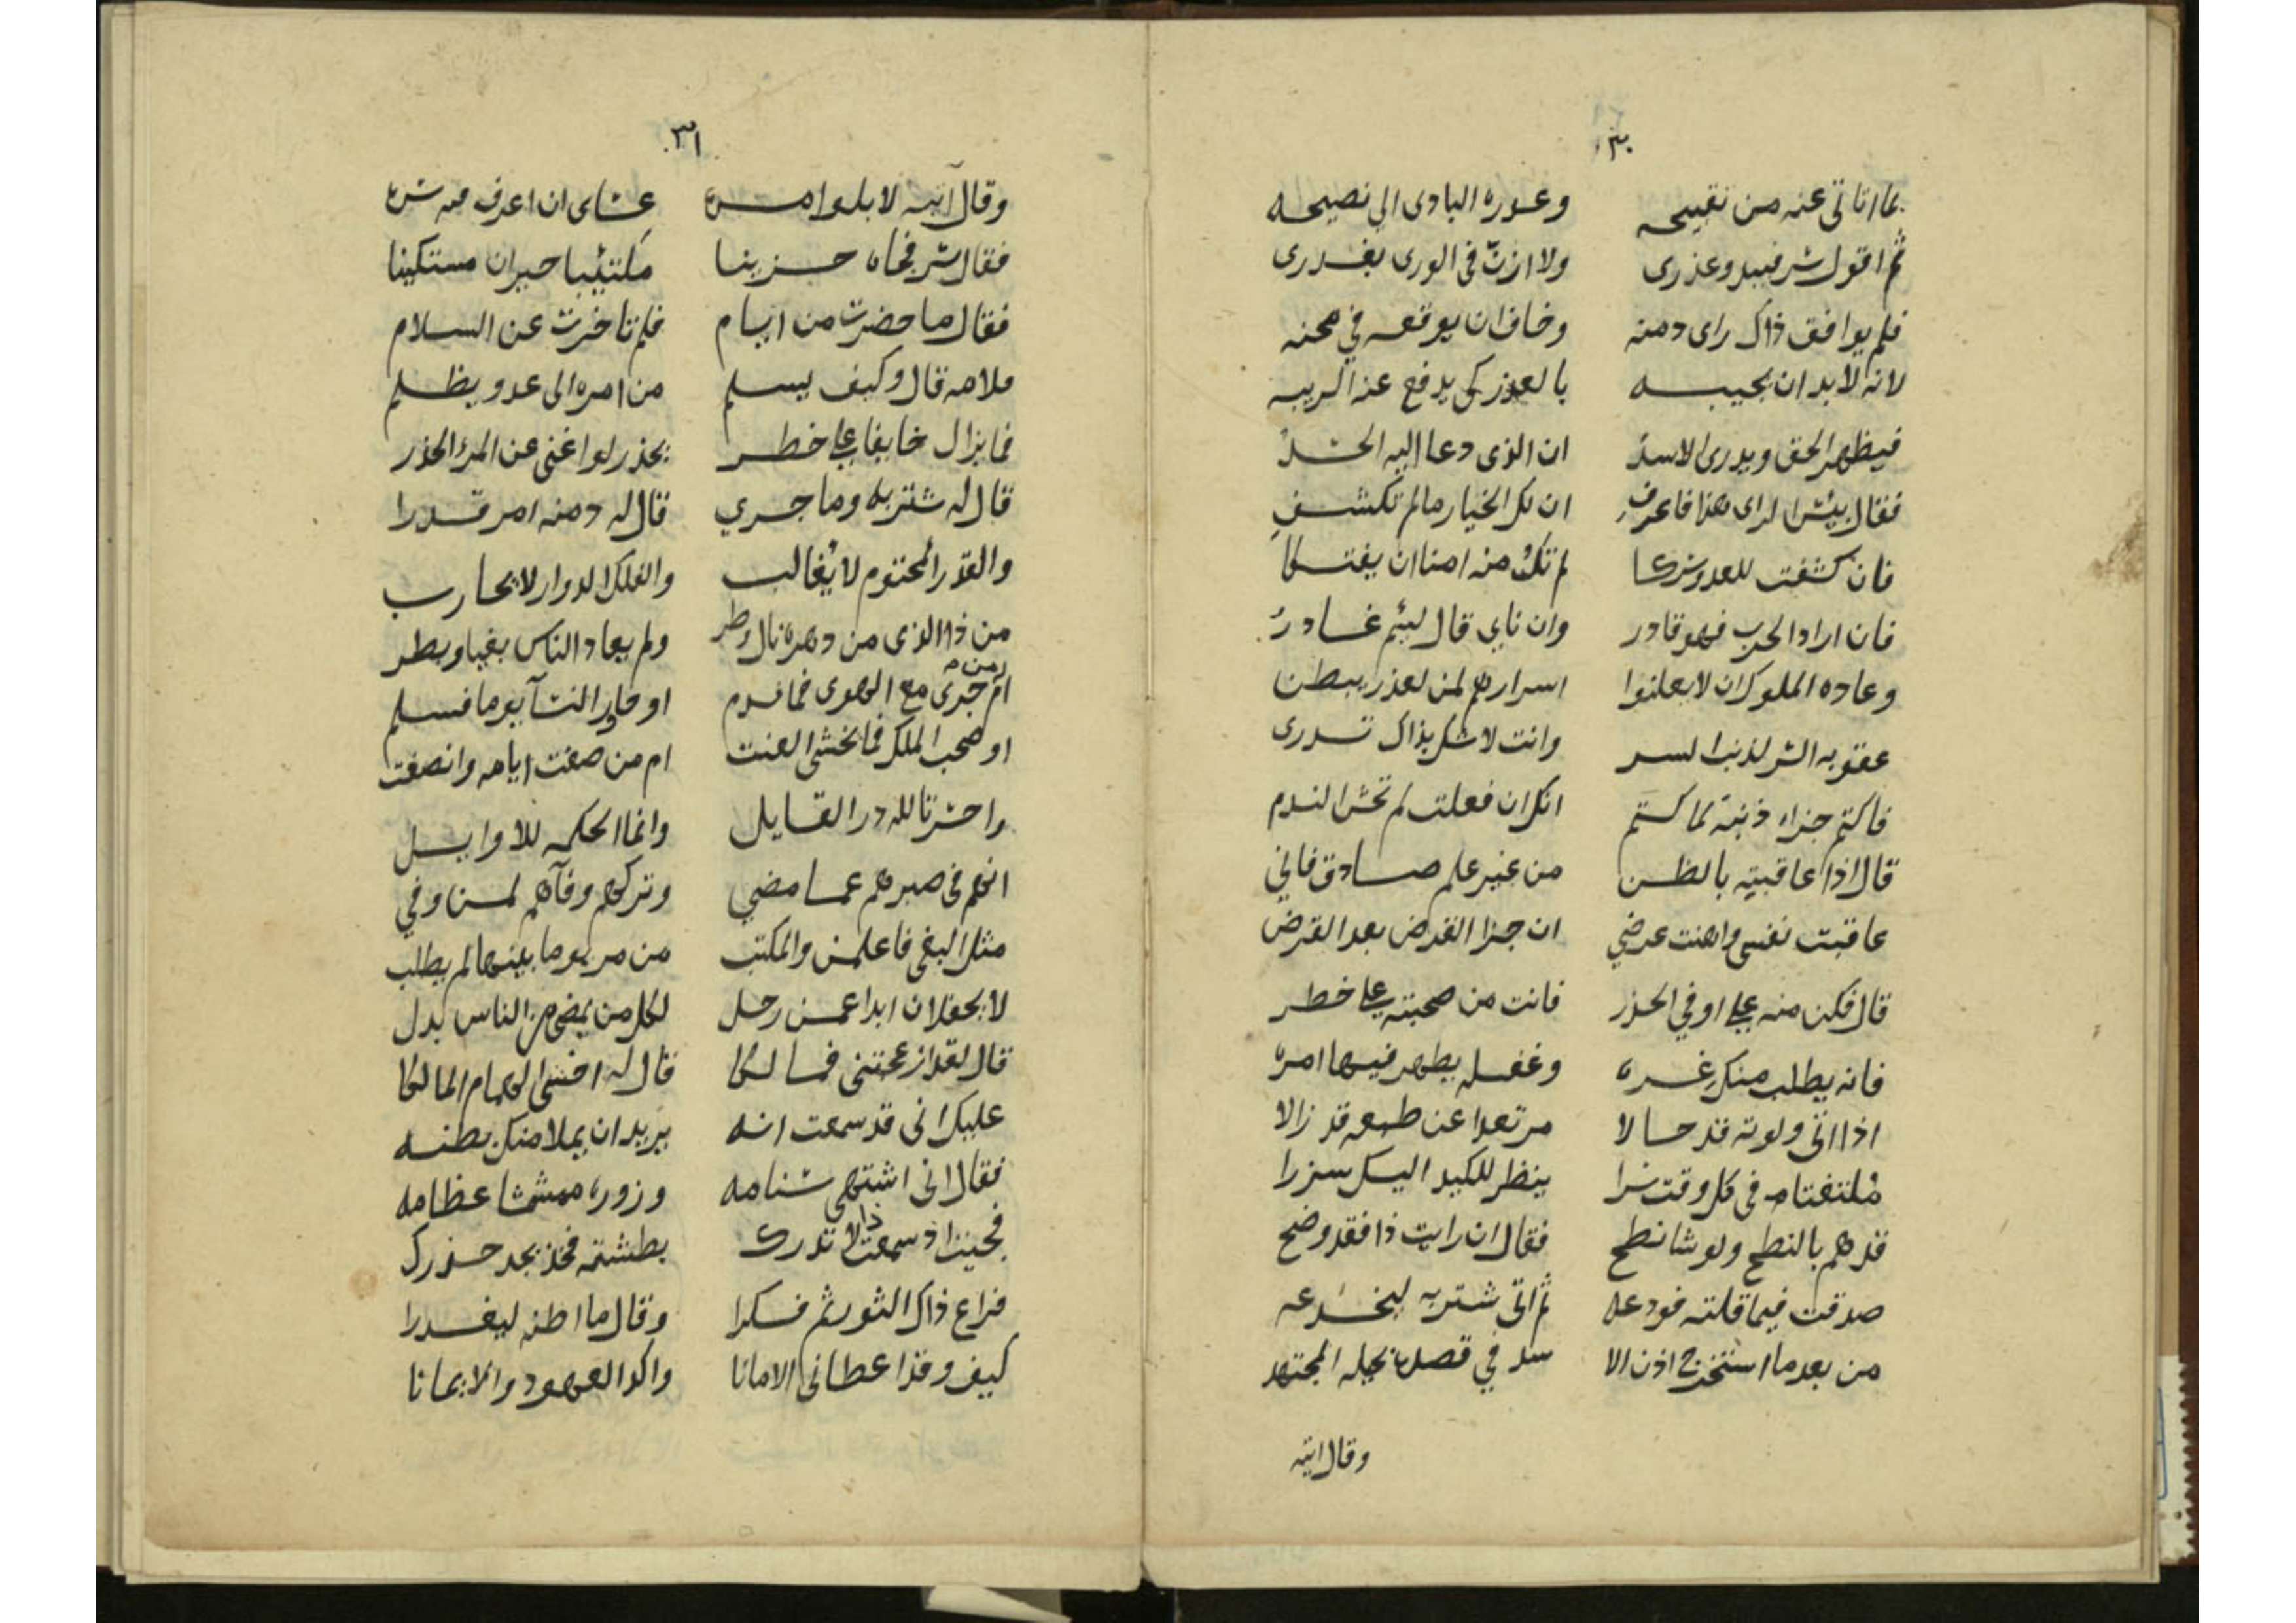 ٣٠
بما اتاتى عنه من نقيحه وعوره البادى الى نصيحه
ثم اقول شر فيبدو عذرى ولا ازنّ فى الورى بغدرى
فلم يوافق ذاك راى دمنه وخاف ان يوقعه في محنه
لانه لابد ان يجيبه بالعذر كى يدفع عنه الريبه
فيظهر الحق ويدرى الاسد ان الذى دعا اليه الحسد
فقال بئس الراى هذا فاعرف ان لك الخيار مالم تكشف
فان كشفت للعدو شركا لم تك منه امنا ان يفتكا
فان اراد الحرب فهو قادر وان ناي قال لئيم غادر
وعاده الملوك ان لا يعلنوا اسرارهم لمن لعذر يبطن
عقوبه السر لذنب السر وانت لا شك بذاك تدرى
فاكتم جزاء ذنبه كما كتم انك ان فعلت لم تخش الندم
قال اذا عاقبته بالظن من غير علم صادق فاني
عاقبت نفسى واهنت عرضي ان جزا القرض بعد القرض
قال فكن منه على اوفي الحذر فانت من صحبته على خطر
فانه يطلب منك غره وغفله يظهر فيها امره
اذا اتى ولونه قد حالا مرتعدا عن طبعه قد زالا
ملتفتا فى كل وقت شزرا ينظر للكيد اليك سزرا
قد هم بالنطح ولو شا نطح فقال ان رايت ذا فقد وضح
صدقت فيما قلته فودعه ثم اتى شتربه ليخدعه
من بعد ما استخرج اذن الا سد في قصده بحيله المجتهد
وقال ايته
٣١
وقال آتيه لا بلو امره عساى ان اعرف منه سره
فقال سر فجاه حزينا مكتئبا حيران مستكينا
فقال ما حضرت من ايام فلم تاخرت عن السلام
ملامه قال وكيف يسلم من امره الى عدو يظلم
فما يزال خايفا على خطر بحذر لو اغنى عن المرء الحذر
قال له شتربه وما جري قال له دمنه امر قدرا
والقدر المحتوم لا يُغالب والفلك الدوار لا يحارب
من ذا الذى من دهره نال وطر ولم يعاد الناس بغيا وبطر
ام من جرى مع الهوى فما ندم او جاور النسآ يوما فسلم
او صحب الملك فما يخشى العنت ام من صفت ايامه وانصفت
واحسرتا لله در القايل وانما الحكمه للاوايل
انهم فى صبرهم عما مضي وتركهم وفآهم لمن وفي
مثل البغى فاعلمن والمكتب من مر يوما بينها لم يطلب
لا يحفلان ابدا عمن رحل لكل من يمضى من الناس بدل
قال لقد ازعجتنى فما لكا قال له اخشى الهمام المالكا
عليك انى قد سمعت انه يريد ان يملا منك بطنه
فقال انى اشتهى سنامه وزوره ممشمشا عظامه
فجيت اذ سمعت ذا لا نذرك بطشته فخذ بجد حذرك
فراع ذاك الثور ثم فكرا وقال ما اظنه ليغدرا
كيف وقد اعطانى الامانا واكد العهود والايمانا